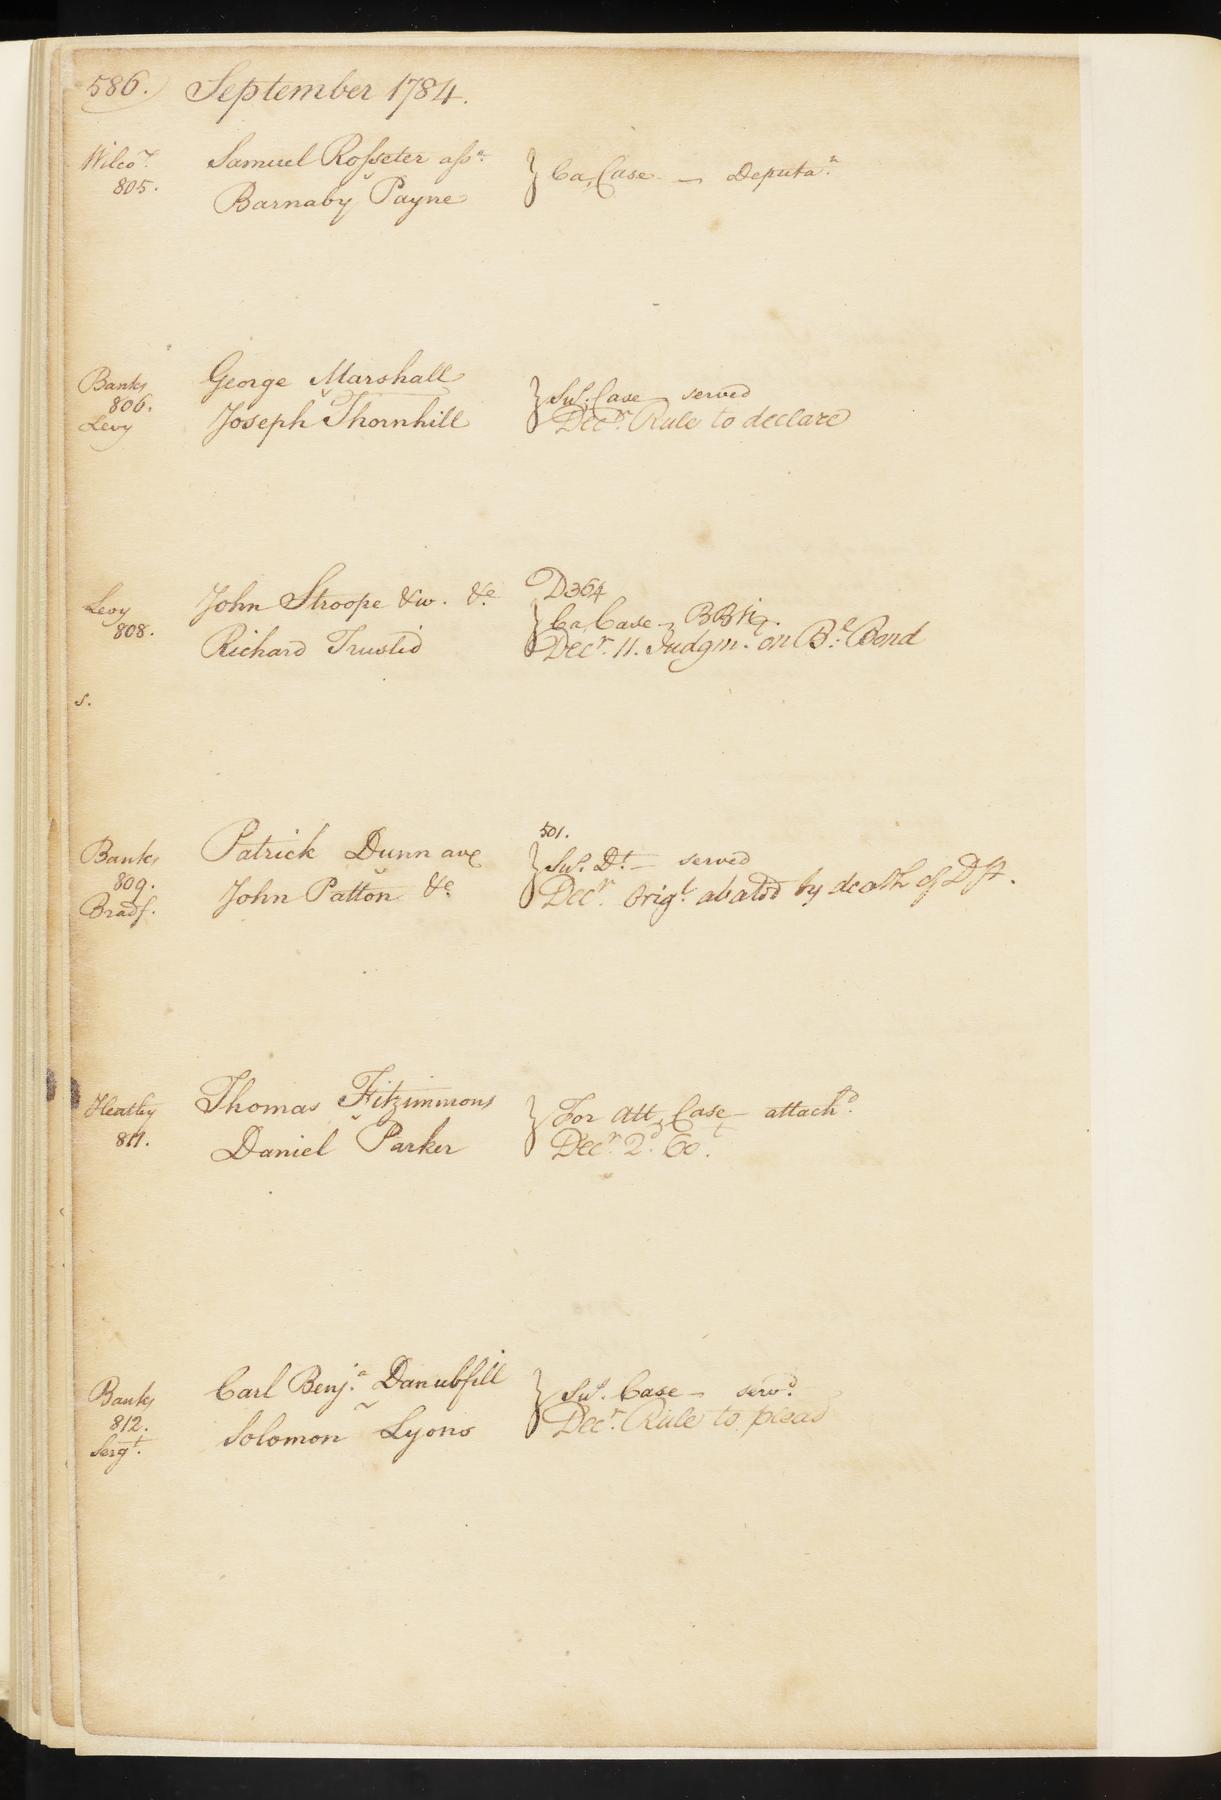 586. September 1784.
Wilco.r Samuel Rosseter ass.e
805. v Barnaby Payne } Ca, Case — Deputa.n
Banks George Marshall
806. v } Sus. Case — served
Levy Joseph Thornhill Dec.r Rule to declare
Levy John Stroope &w. &c. D364
808. } Ca, Case —
Richard Trusted Dec.r 11. Judgm.t on B.l Bond
s.
Banks Patrick Dunn 501.
809. v } Sus. D.t — served
Bradf. John Patton &c. Dec.r Orig.l abated by death of Dft.
Heatly Thomas Fitzimmons
811. v } For Att, Case — attach.d
Daniel Parker Dec.r 2.d Co.t
Banks Carl Benj.n Danubfill
812. ~ } Sus. Case — serv.d
Serg.t Solomon Lyons Dec.r Rule to plead